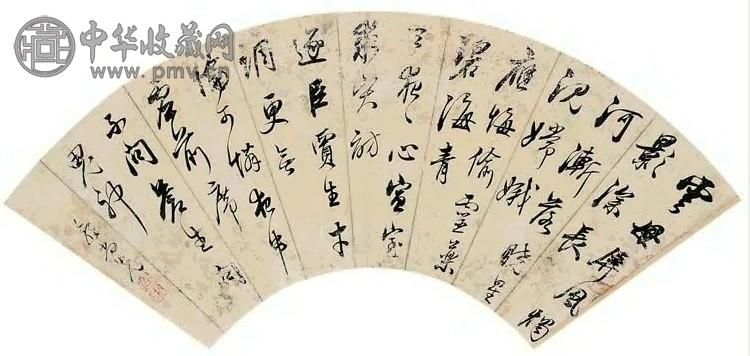 中华收藏网
www.pmv.cn
雲母屏風燭
影深長
河漸落曉星
沉嫦娥
應悔偷靈藥
碧海青
天夜〻心宣室
求賢訪
逐臣賈生才
調更無
倫可憐夜半
虛前席
不問蒼生問
鬼神